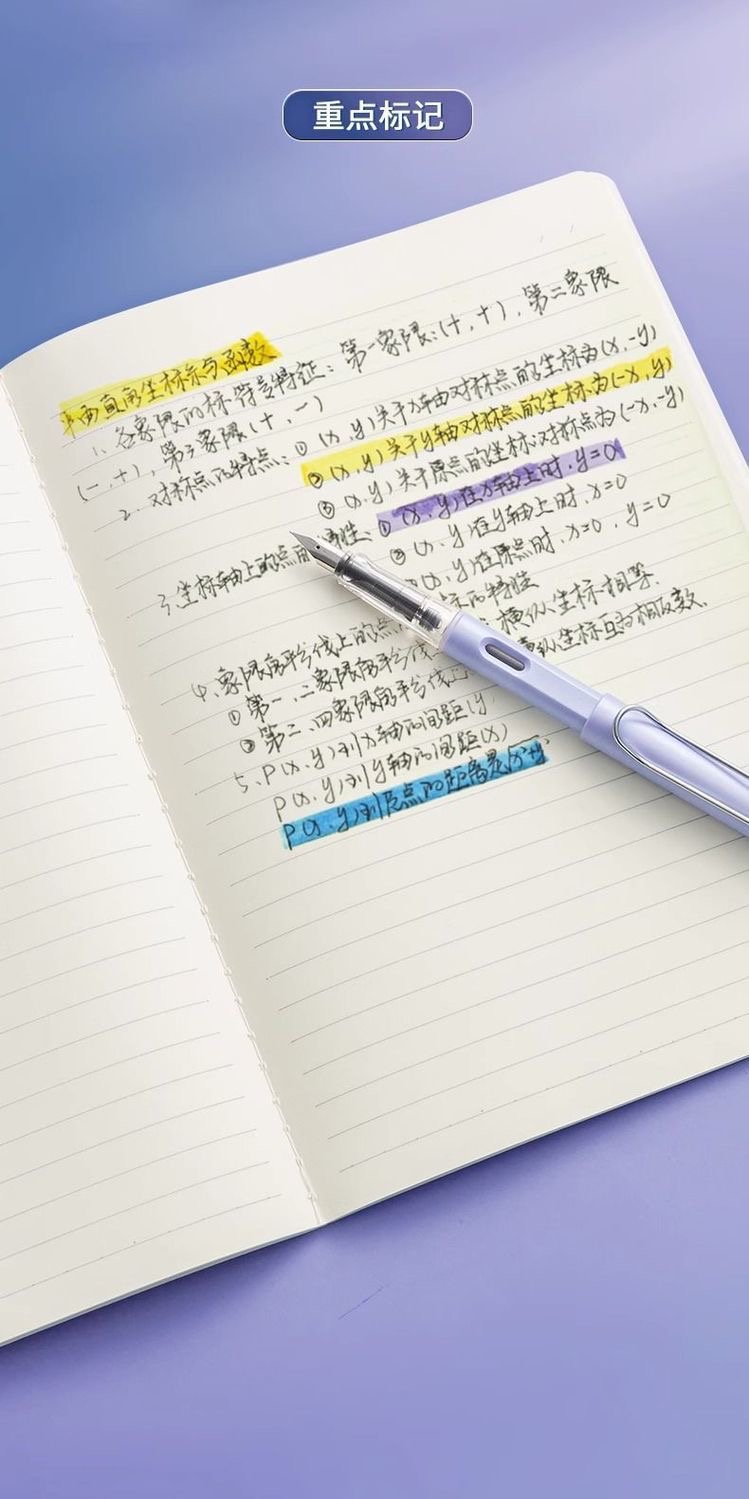 重点标记
平面直角坐标系与函数
1、各象限的标符号特征:第一象限:(+,+),第二象限
(-,+),第三象限(+,-)
2、对称点的特点、①(x,y)关于x轴对称点的坐标为(x,-y)
②(x,y)关于y轴对称点的坐标为(-x,y)
③(x,y)关于原点的坐标对称点为(-x,-y)
3、坐标轴上的点 ①(x,y)在x轴上时,y=0
②(x,y)在y轴上时,x=0
(x,y)在原点时,x=0,y=0
4、象限角平分线上的点 标的特性
①第一、三象限角平分线 横纵坐标相等.
②第二、四象限角平分线 横纵坐标互为相反数.
5、P(x,y)到x轴的间距(y
P(x,y)到y轴的间距(x)
P(x,y)到原点的距离是